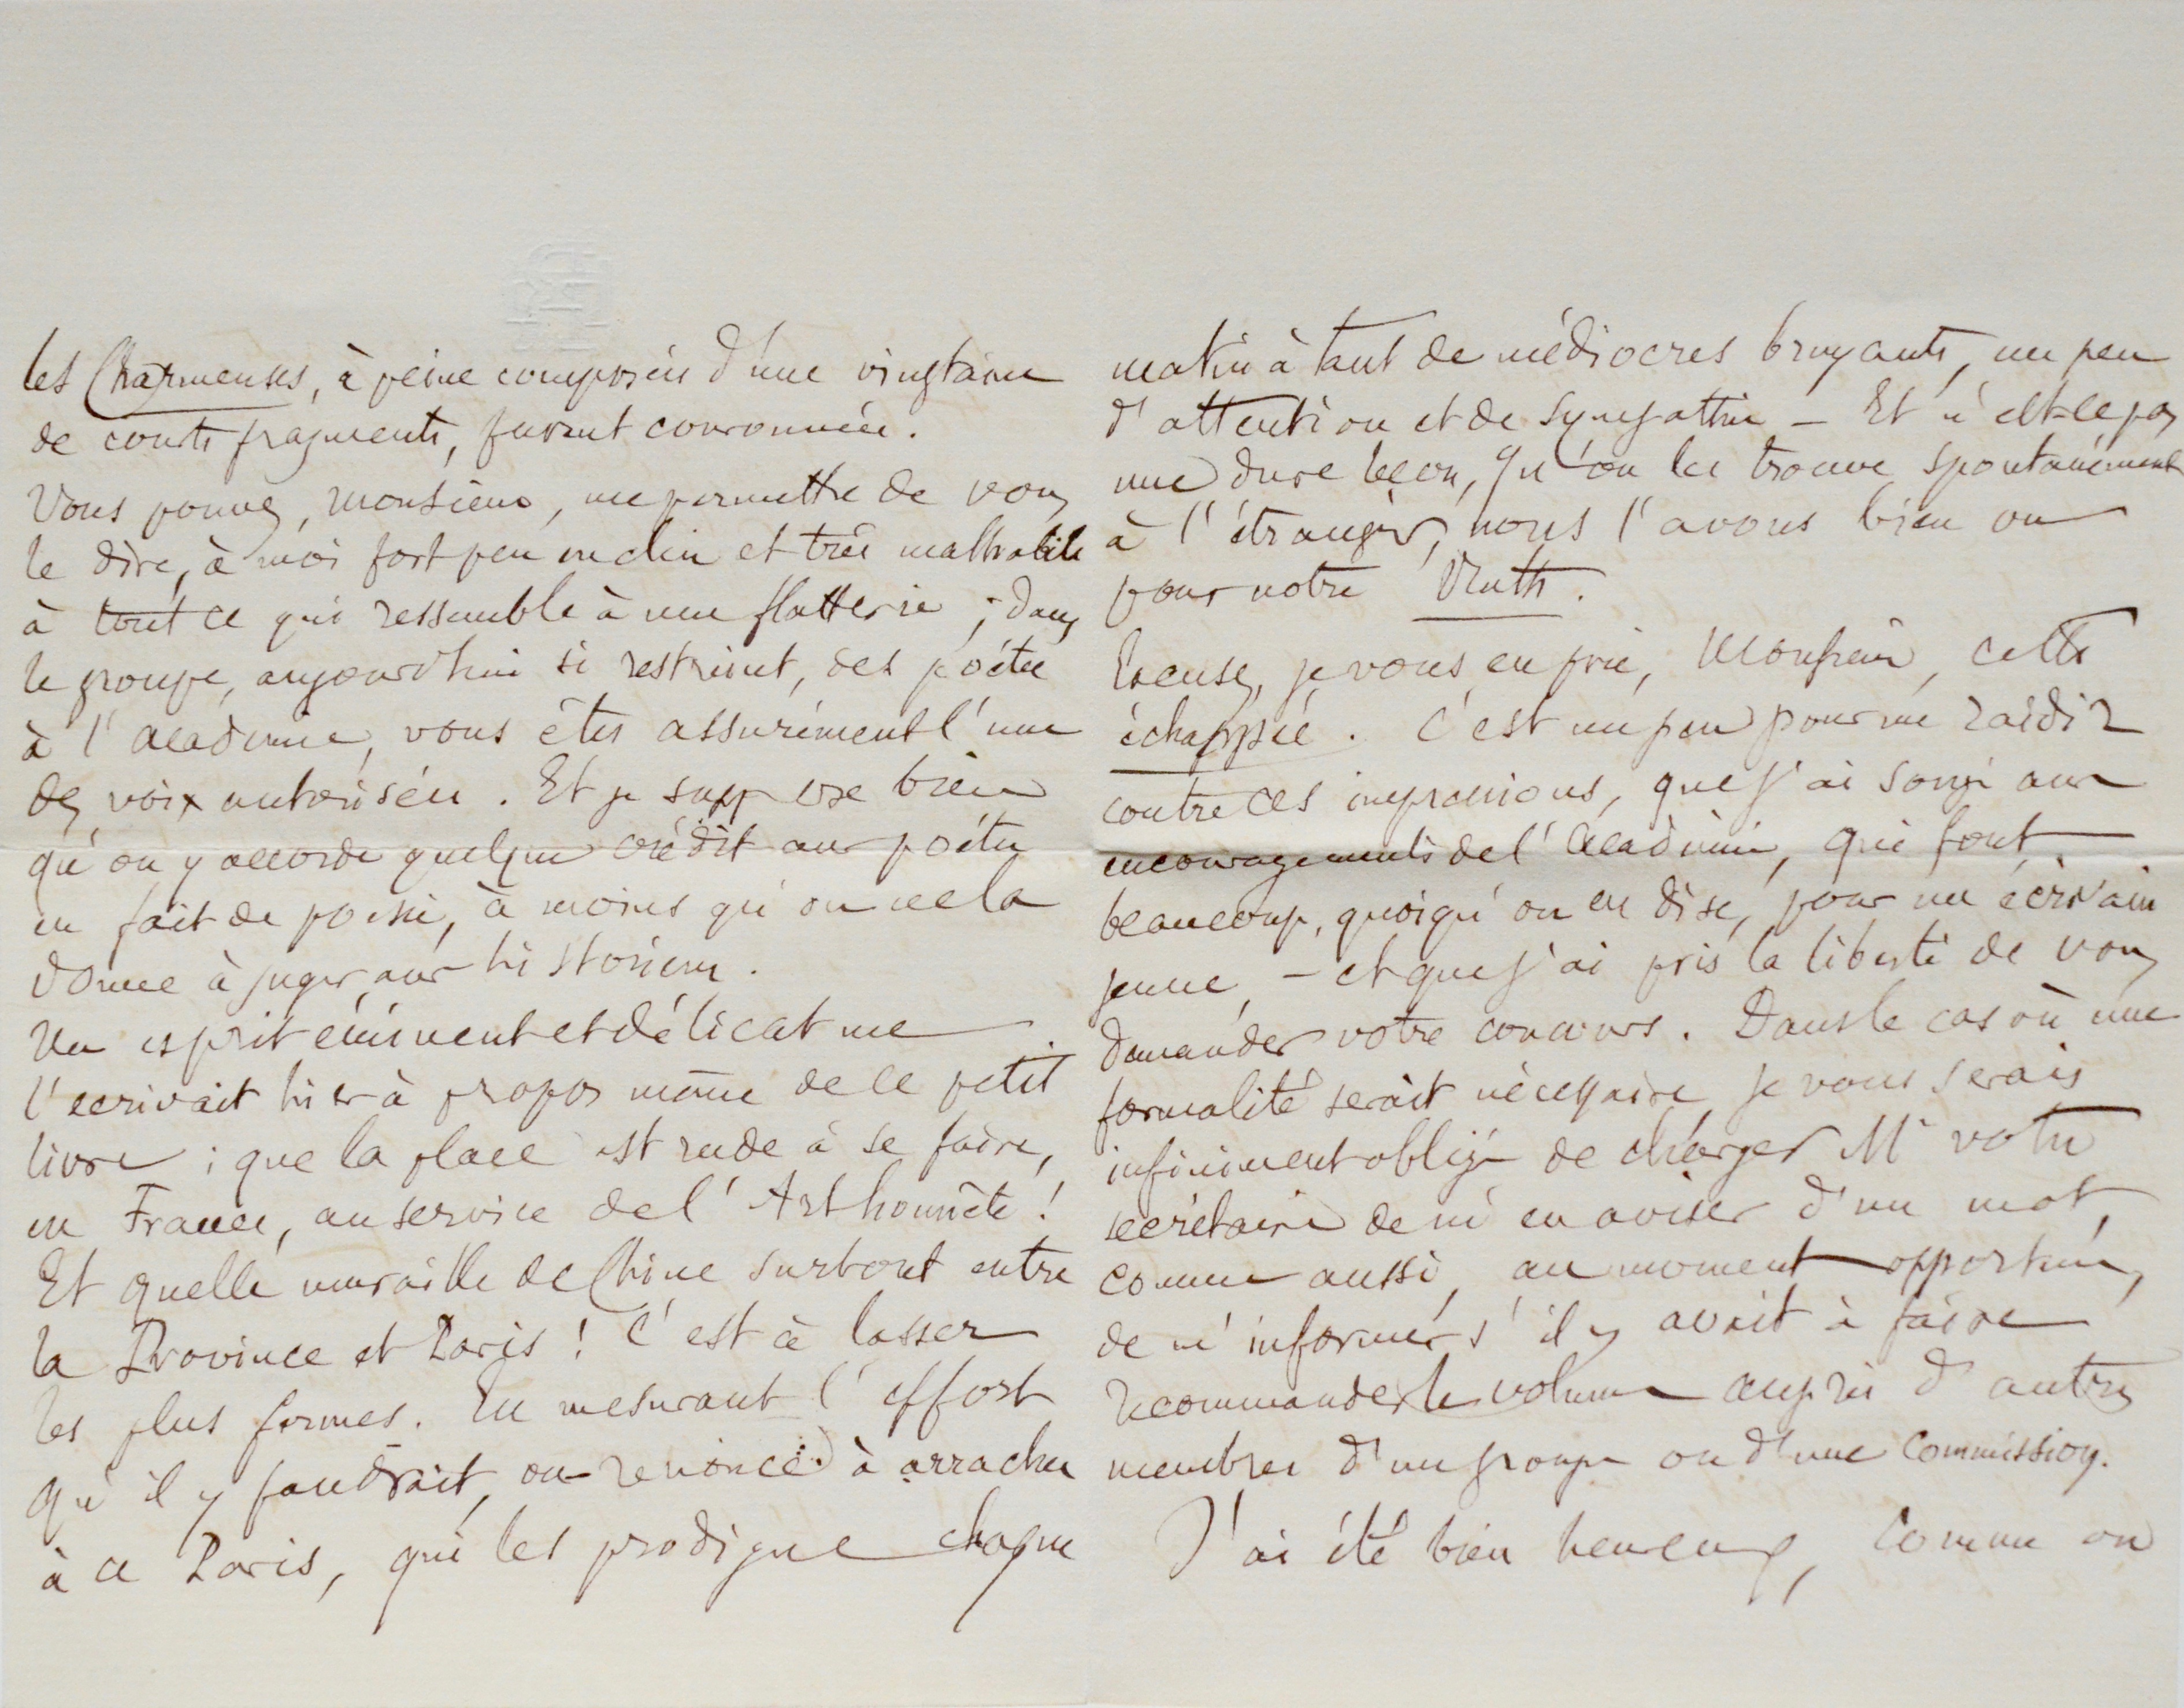 les Charmeuses, à peine composées d'une vingtaine
de courts fragments, furent couronnées.
Vous pouvez, monsieur, me permettre de vous
le dire, à moi fort peu enclin et très malhabile
à tout ce qui ressemble à une flatterie ; dans
le groupe, aujourd'hui si restreint, des poëtes
à l'academie, vous êtes assurément l'une
des voix autorisées. Et je suppose bien
qu'on y accorde quelque crédit aux poëtes
en fait de poesie, à moins qu'on ne la
donne à juger aux historiens.
Un esprit éminent et délicat me
l'ecrivait hier à propos même de ce petit
livre : que la place est rude à se faire,
en France, au service de l'Art honnête !
Et quelle muraille de Chine surtout entre
la Province et Paris ! C'est à lasser
les plus fermes. En mesurant l'effort
qu'il y faudrait, on renonce à arracher
à ce Paris, qui les prodigue chaque
matin à tant de médiocres bruyants, un peu
d'attention et de sympathie – Et n'est-ce pas
une dure leçon, qu'on les trouve spontanément
à l'étranger, nous l'avons bien vu
pour notre Ruth.
Excusez, je vous en prie, Monsieur, cette
échappée. C'est un peu pour me raidir
contre ces impressions, que j'ai songé aux
encouragements de l'Académie, qui font
beaucoup, quoiqu'on en dise, pour un écrivain
jeune, – et que j'ai pris la liberté de vous
demander votre concours. Dans le cas où une
formalité serait nécessaire je vous serais
infiniment obligé de charger Mr votre
secrétaire de m'en aviser d'un mot,
comme aussi, au moment opportun,
de m'informer s'il y avait à faire
recommander le volume auprès d'autres
membres d'un groupe ou d'une Commission.
J'ai été bien heureux, comme on